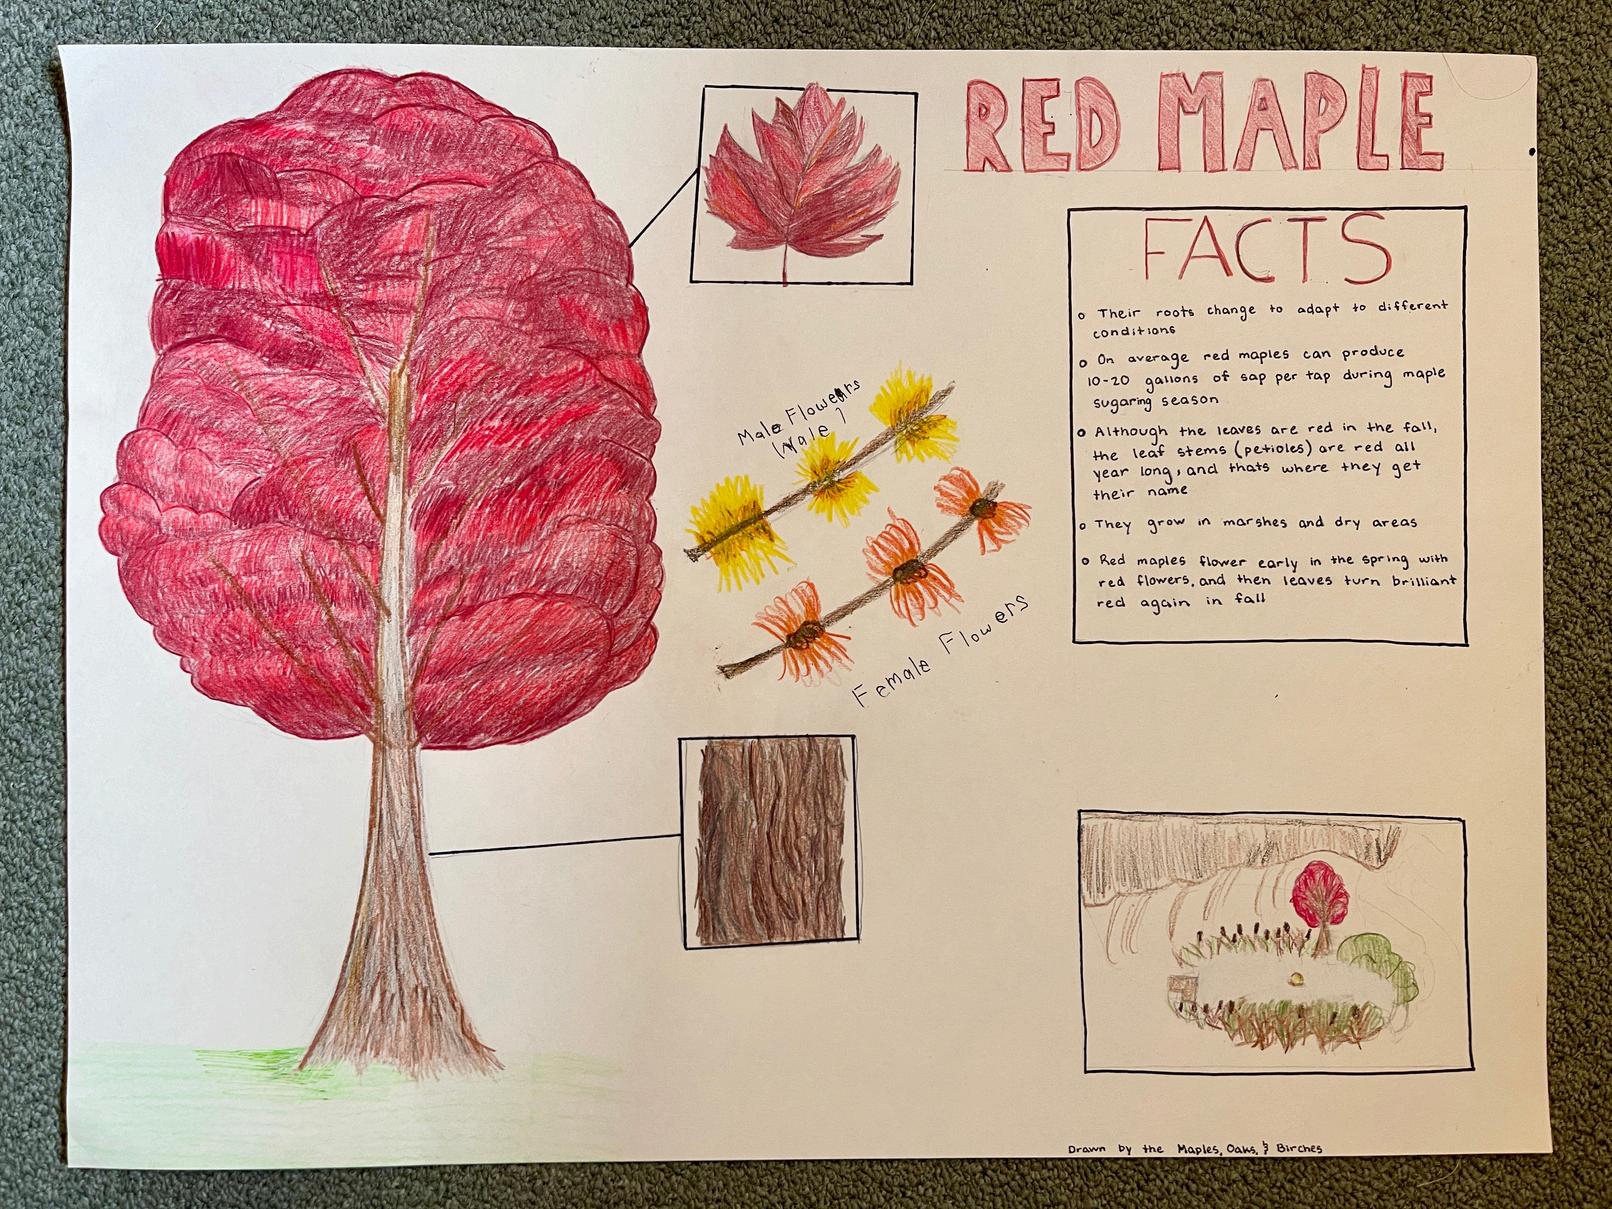 RED MAPLE
FACTS
o Their roots change to adapt to different
conditions
o On average red maples can produce
10-20 gallons of sap per tap during maple
sugaring season
o Although the leaves are red in the fall,
the leaf stems (petioles) are red all
year long, and thats where they get
their name
o They grow in marshes and dry areas
o Red maples flower early in the spring with
red flowers, and then leaves turn brilliant
red again in fall
Male Flowers
Female Flowers
Drawn by the Maples, Oaks, & Birches